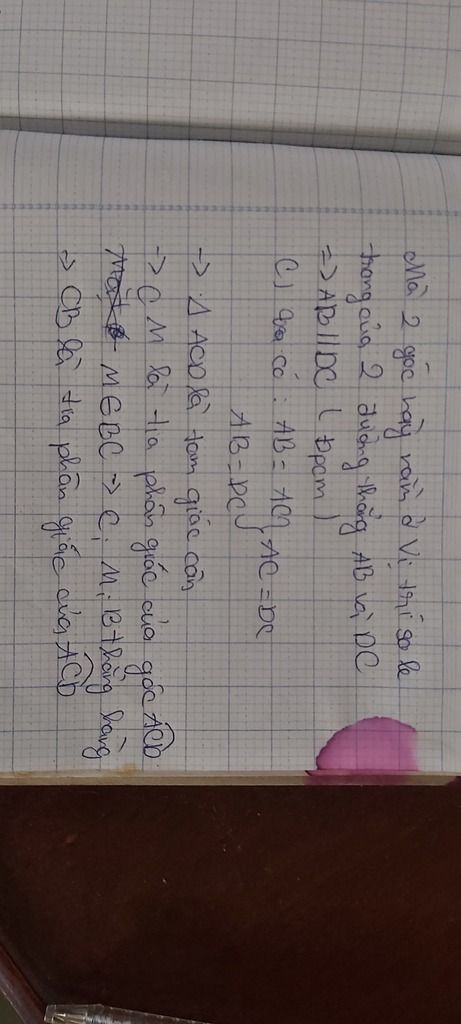 Mà 2 góc này nằm ở vị trí so le
trong của 2 đường thẳng AB và DC
=> AB // DC ( Đpcm )
C) Ta có : AB = AC } AC = DC
AB = DC
-> Δ ACD là tam giác cân
-> CM là tia phân giác của góc ACD
M ∈ BC -> C; M; B thẳng hàng
=> CB là tia phân giác của ACD